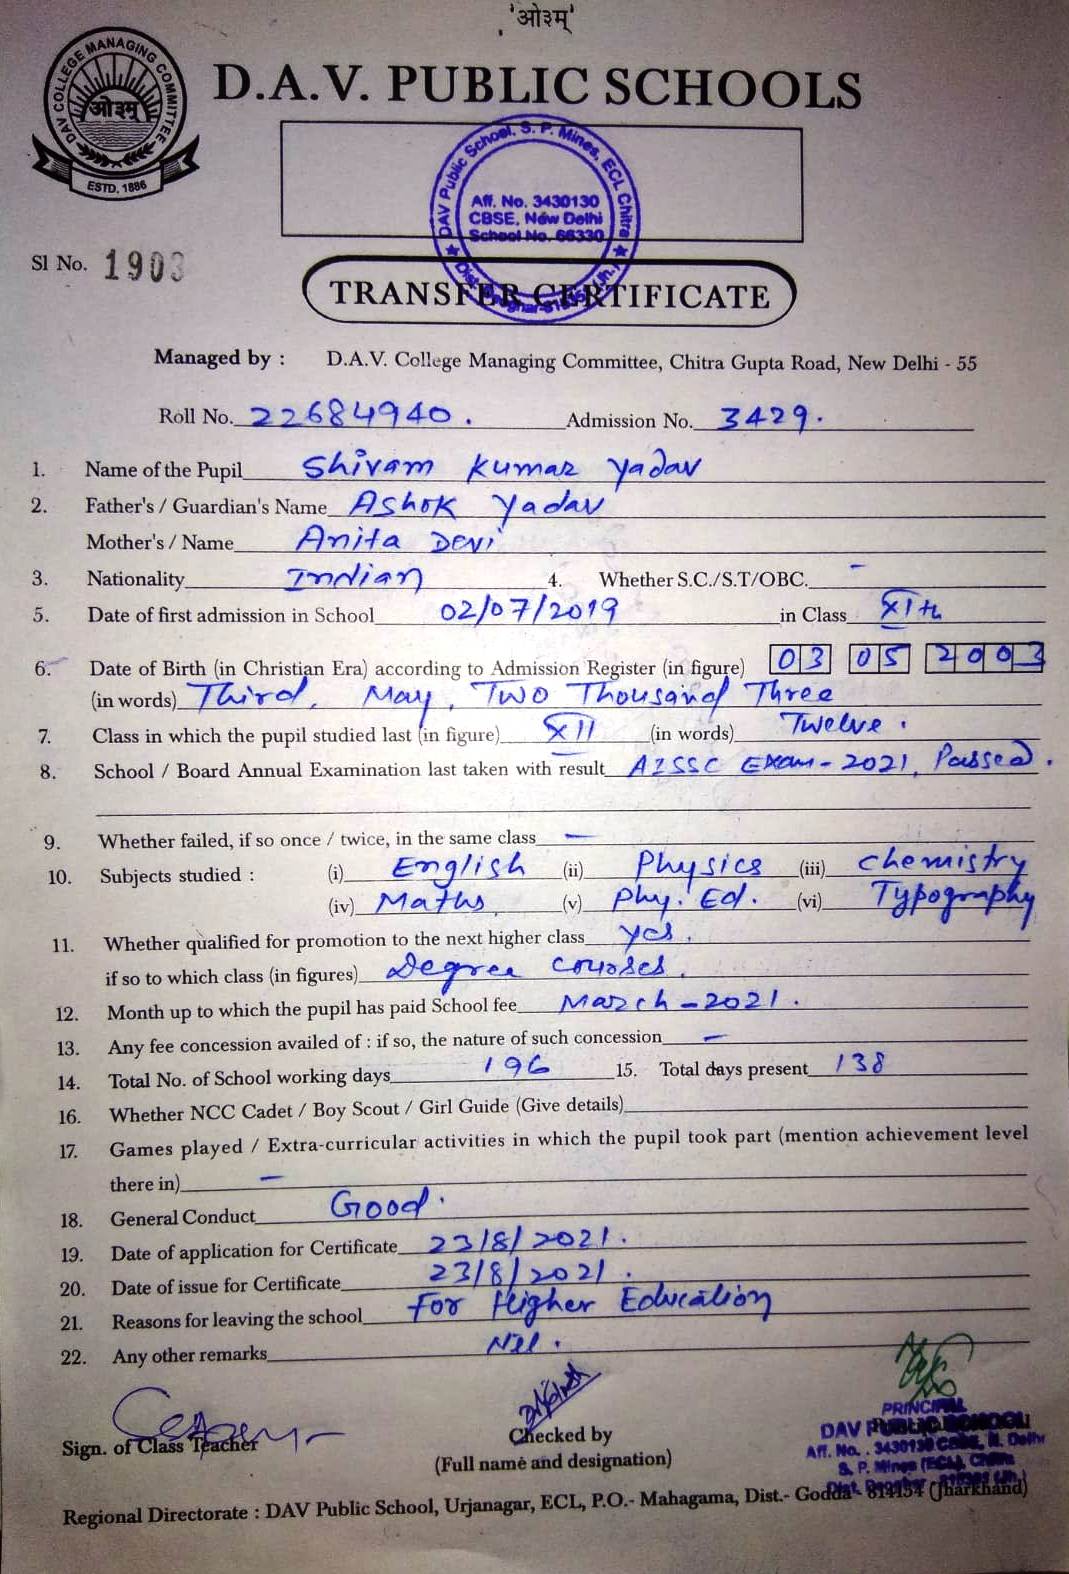 'ओ३म्'
DAV COLLEGE MANAGING COMMITTEE
ओ३म्
ESTD. 1886
D.A.V. PUBLIC SCHOOLS
DAV Public School, S. P. Mines, ECL Chitra
Aff. No. 3430130
CBSE, New Delhi
School No. 66330
Sl No. 1903
TRANSFER CERTIFICATE
Managed by : D.A.V. College Managing Committee, Chitra Gupta Road, New Delhi - 55
Roll No. 22684940. Admission No. 3429.
1. Name of the Pupil Shivam Kumar Yadav
2. Father's / Guardian's Name Ashok Yadav
Mother's / Name Anita Devi
3. Nationality Indian 4. Whether S.C./S.T/OBC. -
5. Date of first admission in School 02/07/2019 in Class XIth
6. Date of Birth (in Christian Era) according to Admission Register (in figure) 03 05 2003
(in words) Third, May, Two Thousand Three
7. Class in which the pupil studied last (in figure) XII (in words) Twelve.
8. School / Board Annual Examination last taken with result AISSC Exam-2021, Passed.
9. Whether failed, if so once / twice, in the same class -
10. Subjects studied : (i) English (ii) Physics (iii) Chemistry
(iv) Maths (v) Phy. Ed. (vi) Typography
11. Whether qualified for promotion to the next higher class yes.
if so to which class (in figures) Degree courses.
12. Month up to which the pupil has paid School fee March-2021.
13. Any fee concession availed of : if so, the nature of such concession -
14. Total No. of School working days 196 15. Total days present 138
16. Whether NCC Cadet / Boy Scout / Girl Guide (Give details)
17. Games played / Extra-curricular activities in which the pupil took part (mention achievement level
there in) -
18. General Conduct Good.
19. Date of application for Certificate 23/8/2021.
20. Date of issue for Certificate 23/8/2021.
21. Reasons for leaving the school For Higher Education
22. Any other remarks Nil.
Sign. of Class Teacher
Checked by
(Full name and designation)
PRINCIPAL
DAV PUBLIC SCHOOL
Aff. No. 3430130 CBSE, N. Delhi
S. P. Mines (ECL), Chitra
Regional Directorate : DAV Public School, Urjanagar, ECL, P.O.- Mahagama, Dist.- Godda- 814154 (Jharkhand)